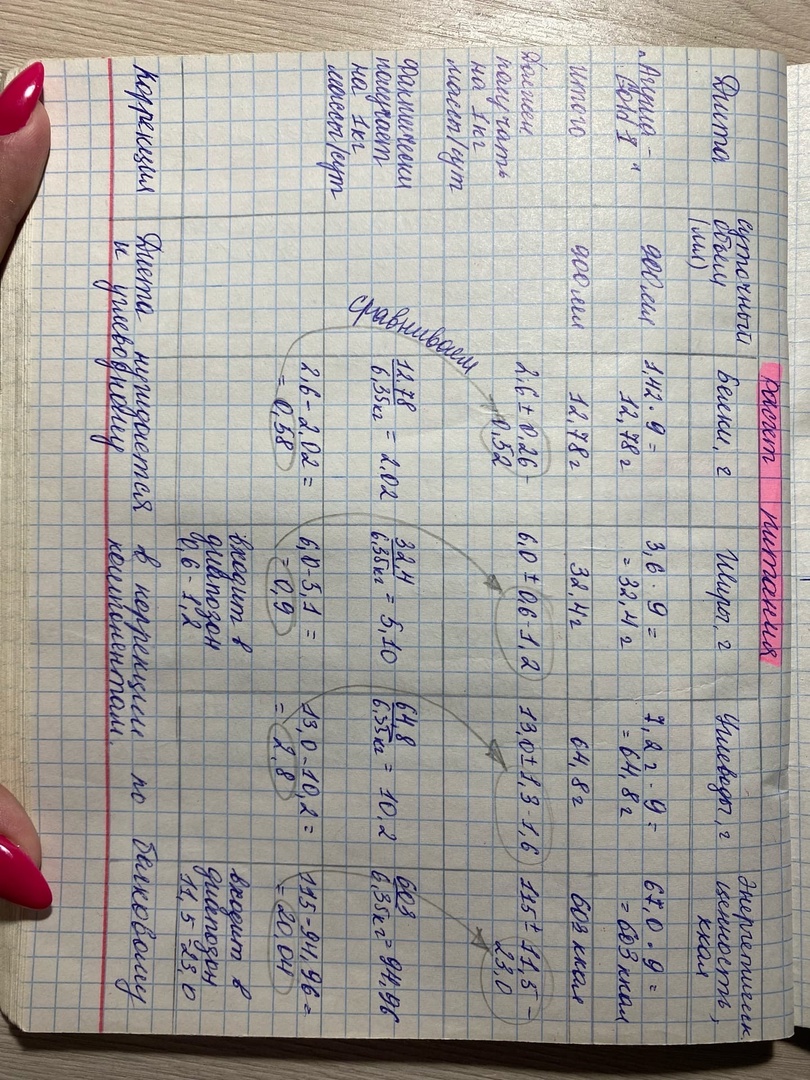 Расчет питания
Диета
суточный
объем
(мл)
Белки, г
Жиры, г
Углеводы, г
Энергетическ
ценность,
ккал
900 мл
1,42 · 9 =
12,78 г
3,6 · 9 =
= 32,4 г
7,2 г · 9 =
= 64,8 г
67,0 · 9 =
= 603 ккал
Итого
900 мл
12,78 г
32,4 г
64,8 г
603 ккал
Должен
получать
на 1 кг
массы/сут
2,6 ± 0,26 -
0,52
6,0 ± 0,6 - 1,2
13,0 ± 1,3 - 1,6
115 ± 11,5 -
23,0
сравниваем
Фактически
получает
на 1 кг
массы/сут
12,78
6,35 кг = 2,02
32,4
6,35 кг = 5,10
64,8
6,35 кг = 10,2
603
6,35 кг = 94,96
2,6 - 2,02 =
= 0,58
6,0 - 5,1 =
= 0,9
13,0 - 10,2 =
= 2,8
115 - 94,96 =
= 20,04
входит в
диапозон
0,6 - 1,2
входит в
диапозон
11,5 - 23,0
Коррекция
Диета нуждается в коррекции по белковому
и углеводному компонентам.